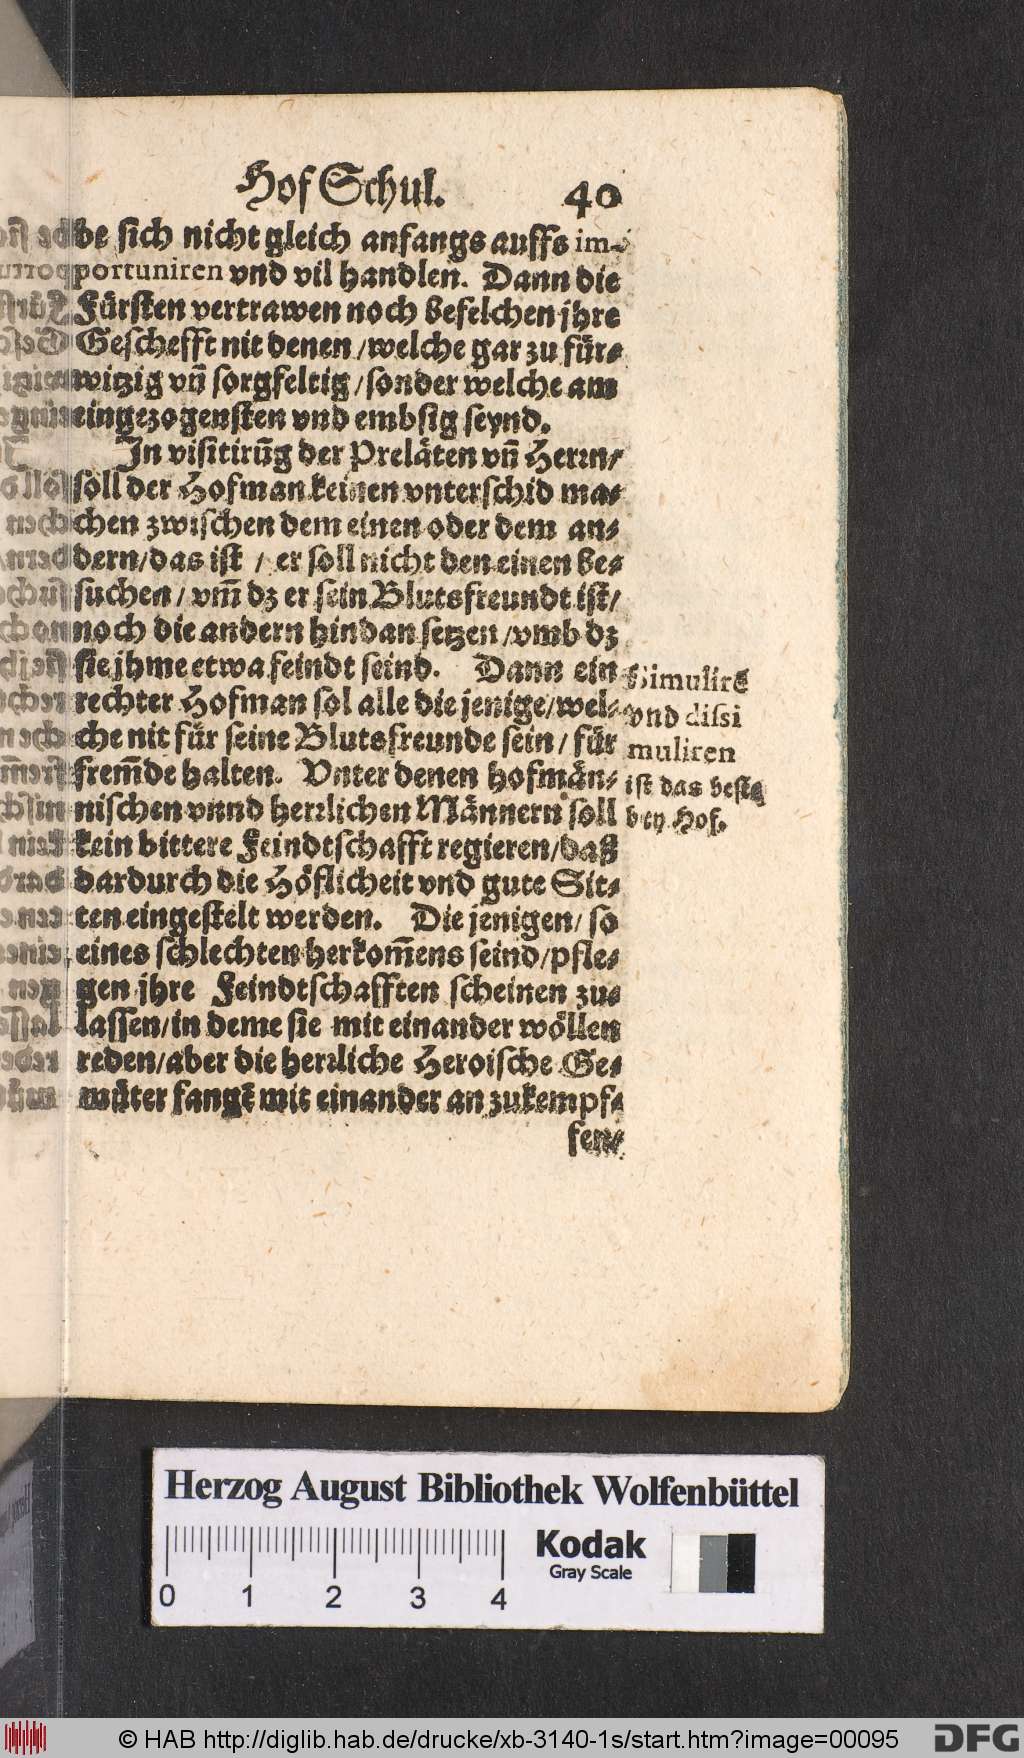 Hof Schul. 40
be sich nicht gleich anfangs auffs im-
portuniren vnd vil handlen. Dann die
Fürsten vertrawen noch befelchen jhre
Geschefft nit denen / welche gar zu für-
witzig vñ sorgfeltig / sonder welche am
eingezogensten vnd embsig seynd.
In visitirũg der Preläten vñ Herrn /
soll der Hofman keinen vnterschid ma-
chen zwischen dem einen oder dem an-
dern / das ist / er soll nicht den einen be-
suchen / vm̃ dz er sein Blutsfreundt ist /
noch die andern hindan setzen / vmb dz
sie jhme etwa feindt seind. Dann ein
rechter Hofman sol alle die jenige / wel-
che nit für seine Blutsfreunde sein / für
frem̃de halten. Vnter denen hofmän-
nischen vnnd herrlichen Männern soll
kein bittere Feindtschafft regieren / daß
dardurch die Höflicheit vnd gute Sit-
ten eingestelt werden. Die jenigen / so
eines schlechten herkom̃ens seind / pfle-
gen jhre Feindtschafften scheinen zu-
lassen / in deme sie mit einander wöllen
reden / aber die herrliche Heroische Ge-
müter fangẽ mit einander an zukempf-
fen /
Simulirẽ
vnd dissi
muliren
ist das beste
bey Hof.
Herzog August Bibliothek Wolfenbüttel
0 1 2 3 4
Kodak
Gray Scale
© HAB http://diglib.hab.de/drucke/xb-3140-1s/start.htm?image=00095
DFG